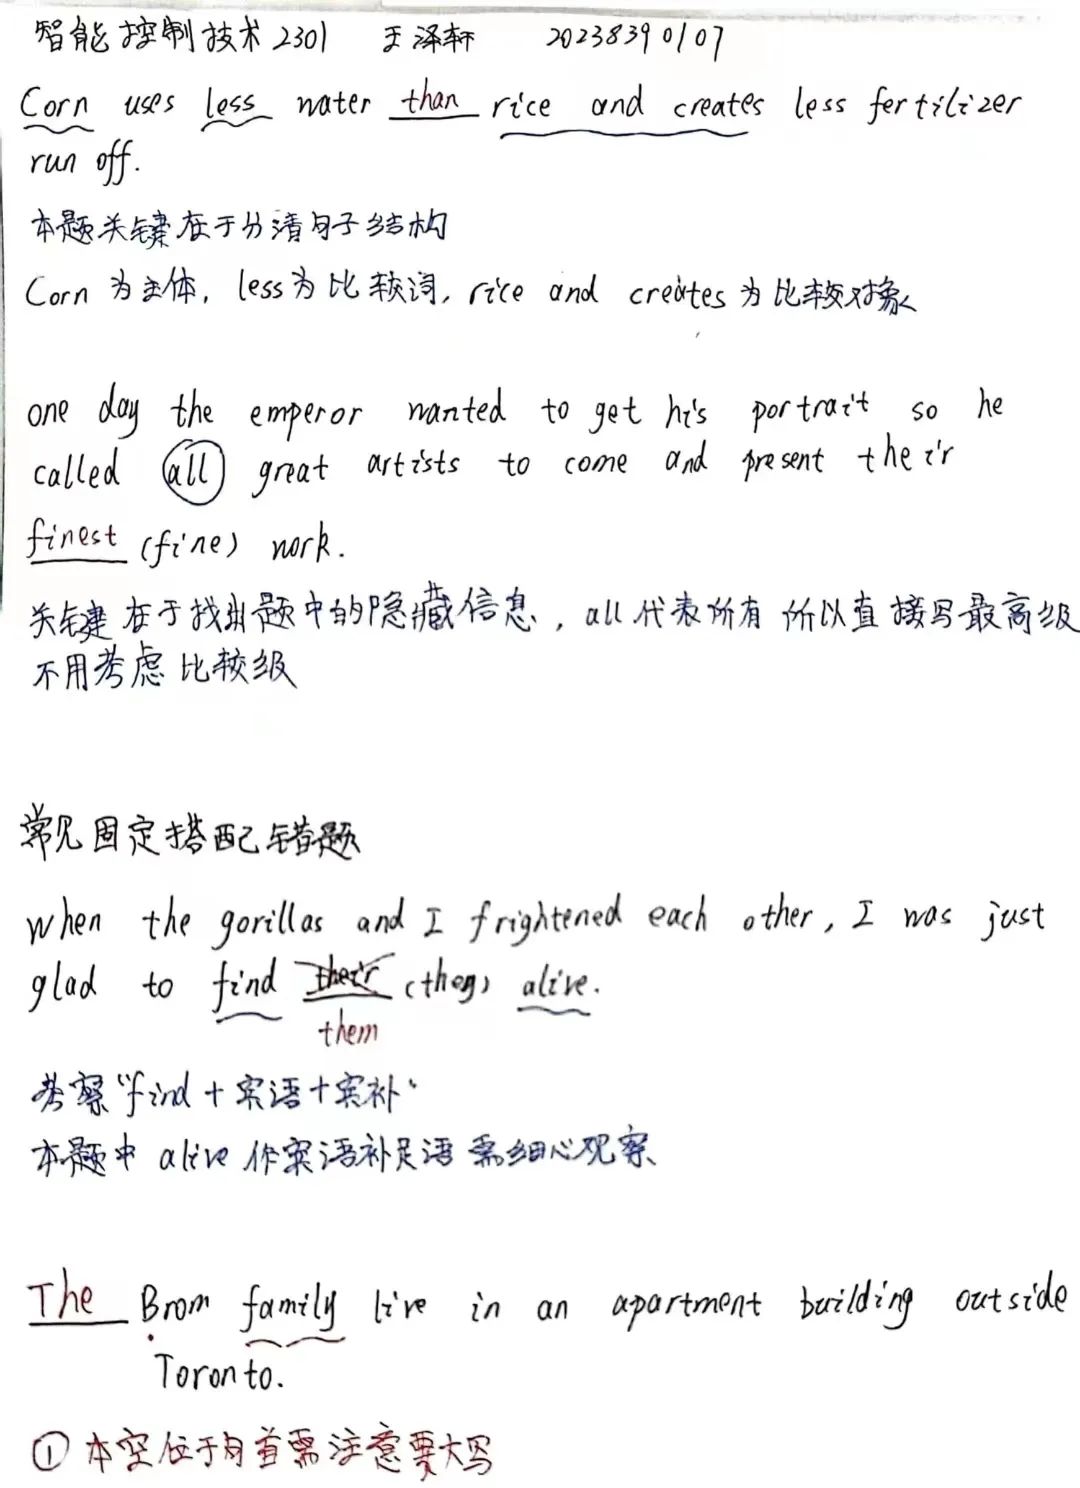 智能控制技术2301 王泽轩 20238390107
Corn uses less water than rice and creates less fertilizer
run off.
本题关键在于分清句子结构
Corn为主体, less为比较词, rice and creates为比较对象
one day the emperor wanted to get his portrait so he
called all great artists to come and present their
finest (fine) work.
关键在于找出题中的隐藏信息, all代表所有 所以直接写最高级
不用考虑比较级
常见固定搭配错题
When the gorillas and I frightened each other, I was just
glad to find their (they) alive.
them
考察“find+宾语+宾补”
本题中alive作宾语补足语 需细心观察
The Brom family live in an apartment building outside
Toronto.
① 本空位于句首需注意要大写